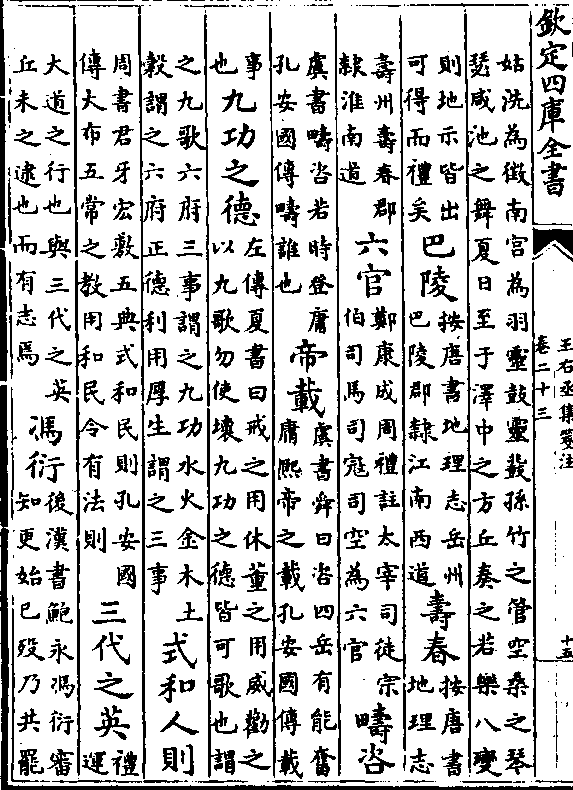 欽定四庫全書
王右丞集箋注
卷二十三
十五
姑洗為徵南宫為羽靈鼓靈鼗孫竹之管空桑之琴
瑟咸池之舞夏日至于澤中之方丘奏之若樂八變
則地示皆出
可得而禮矣
巴陵
按唐書地理志岳州
巴陵郡隸江南西道
壽春
按唐書
地理志
壽州壽春郡
隸淮南道
六官
鄭康成周禮註太宰司徒宗
伯司馬司寇司空為六官
疇咨
虞書疇咨若時登庸
孔安國傳疇誰也
帝載
虞書舜曰咨四岳有能奮
庸熙帝之載孔安國傳載
事
也
九功之德
左傳夏書曰戒之用休董之用威勸之
以九歌勿使壞九功之德皆可歌也謂
之九歌六府三事謂之九功水火金木土
穀謂之六府正德利用厚生謂之三事
式和人則
周書君牙宏敷五典式和民則孔安國
傳大布五常之教用和民令有法則
三代之英
禮
運
大道之行也與三代之英
丘未之逮也而有志焉
馮衍
後漢書鮑永馮衍審
知更始已歿乃共罷